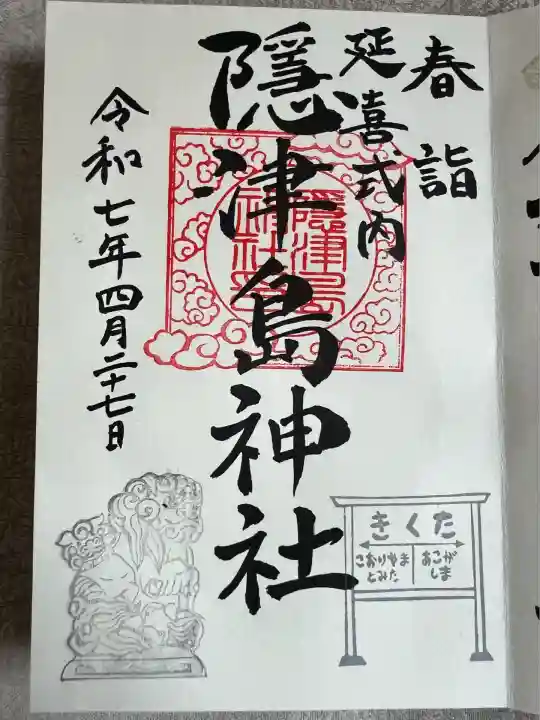 春詣
延喜式内
隱津島神社
令和七年四月二十七日
隱津島
神社
きくた
こおりやま
とみた
あこが
しま